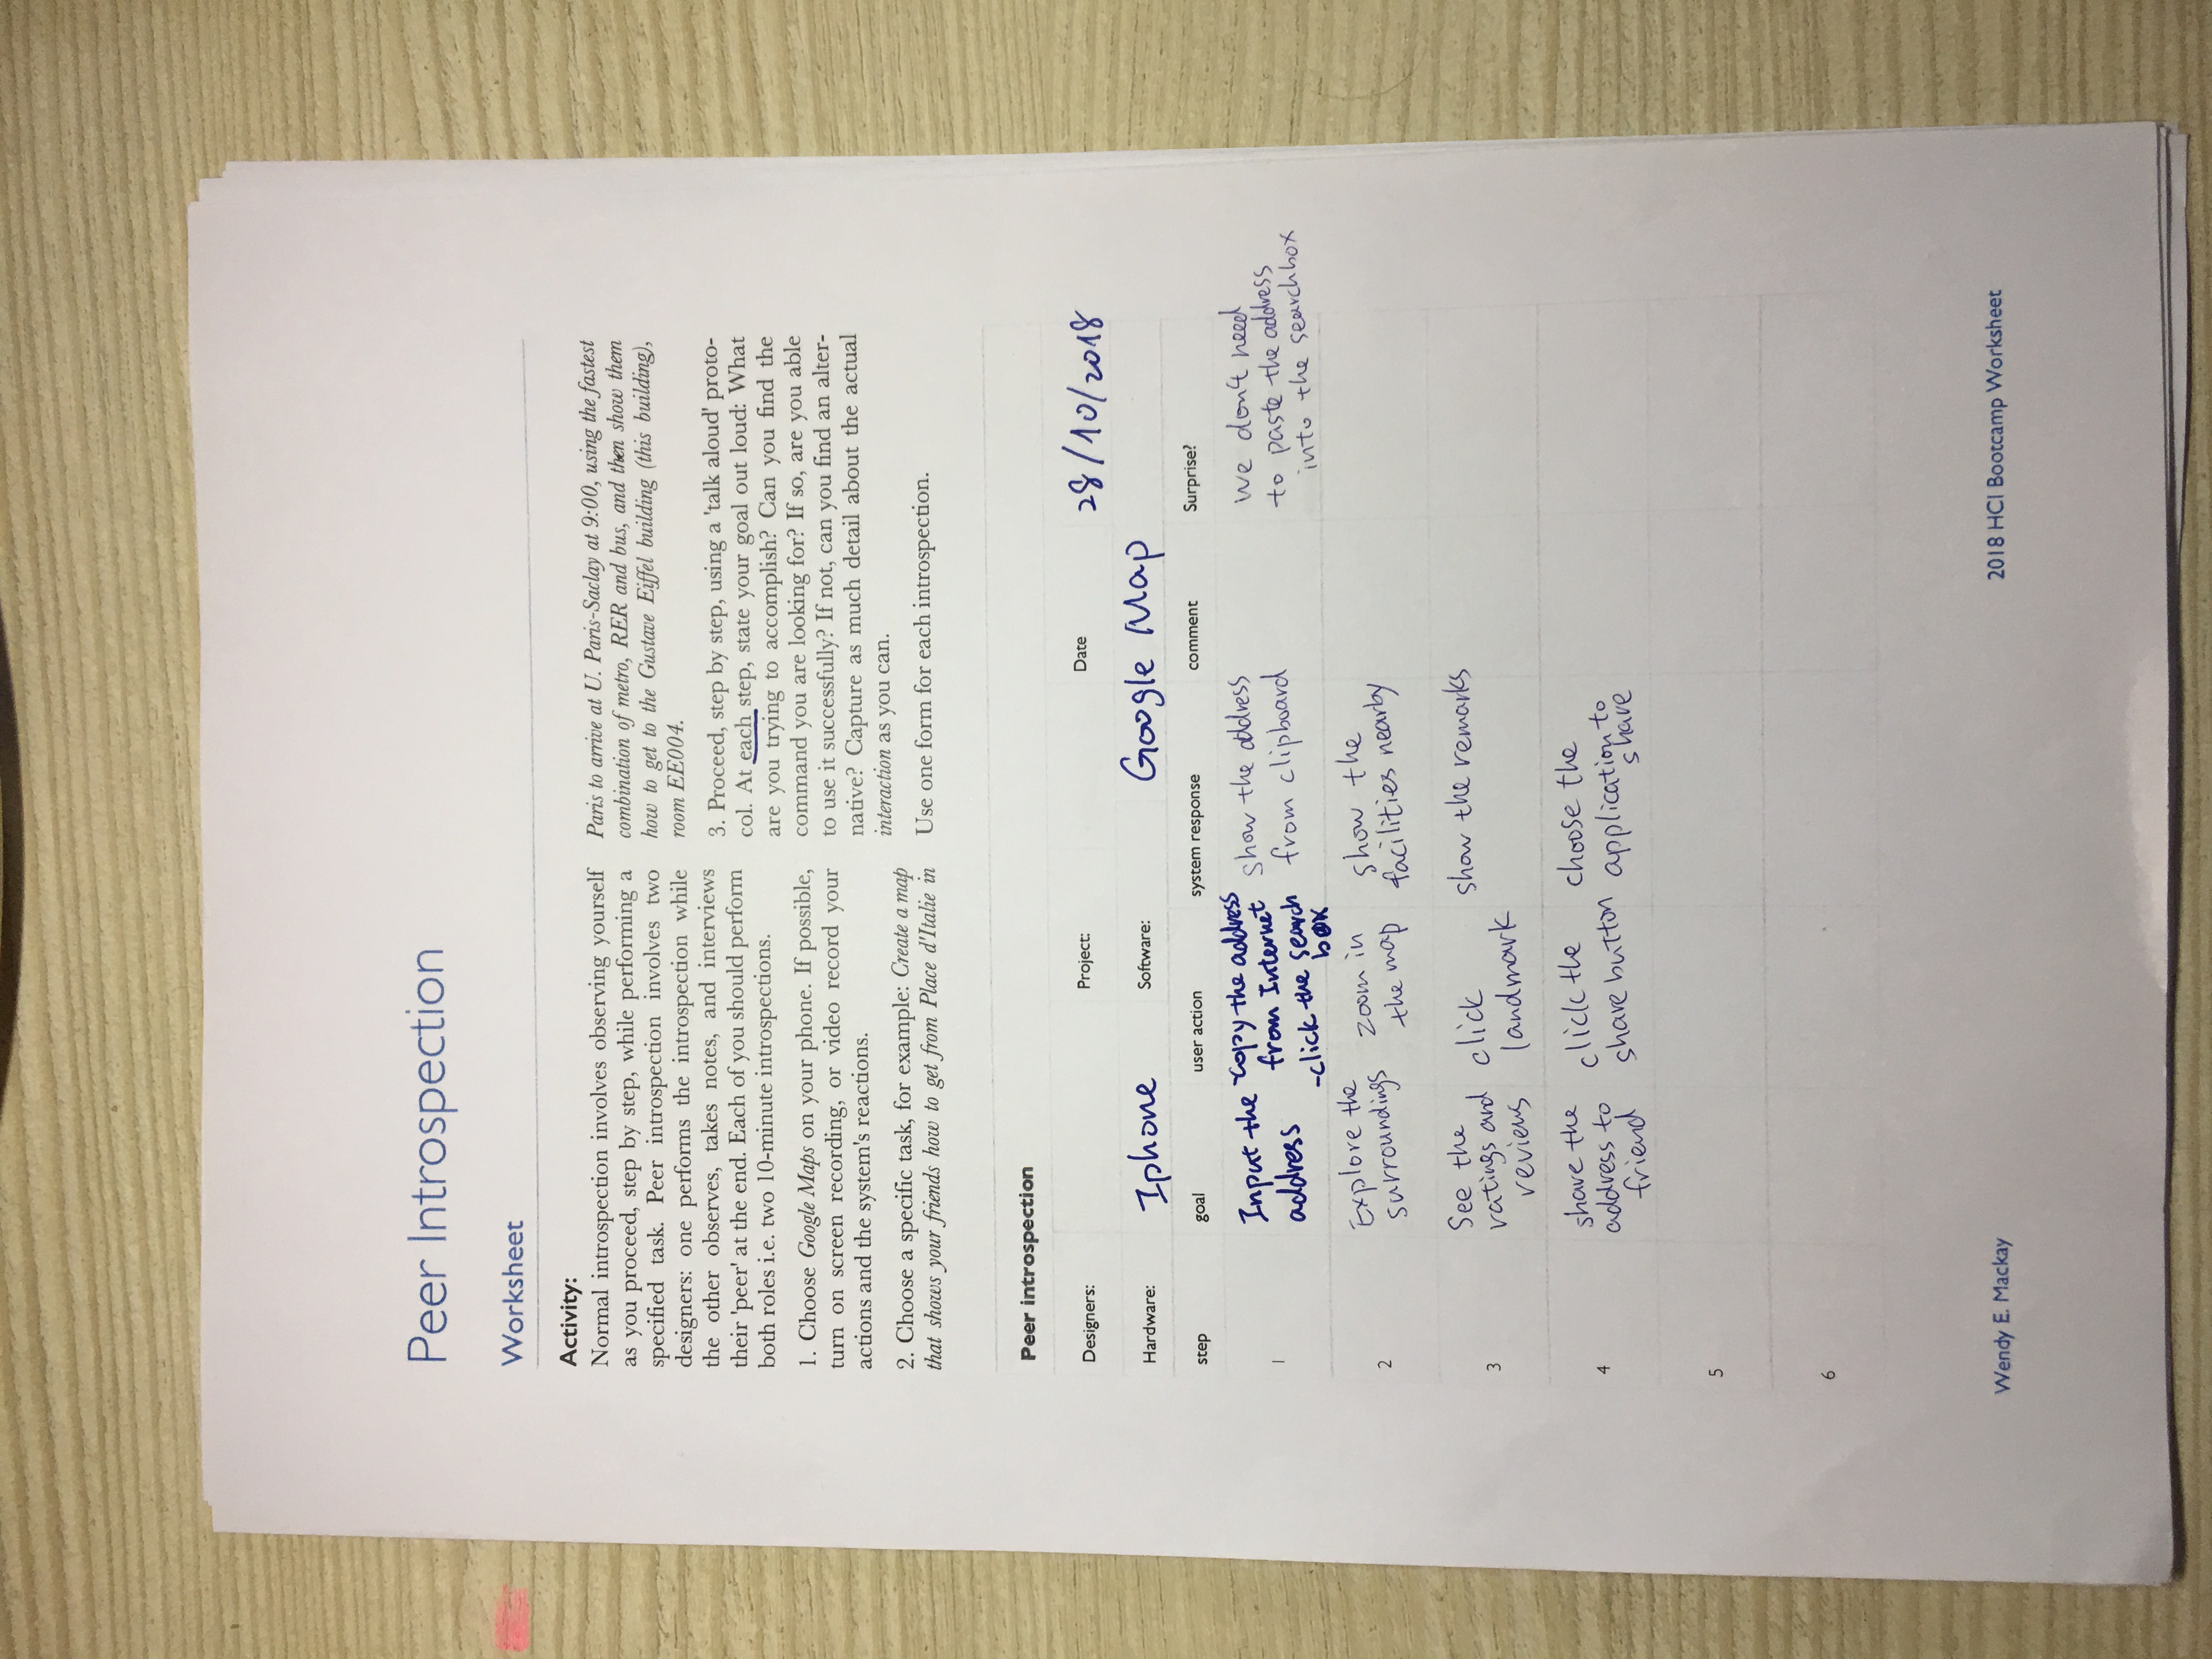 Peer Introspection
Worksheet
Activity:
Normal introspection involves observing yourself
as you proceed, step by step, while performing a
specified task. Peer introspection involves two
designers: one performs the introspection while
the other observes, takes notes, and interviews
their 'peer' at the end. Each of you should perform
both roles i.e. two 10-minute introspections.
1. Choose Google Maps on your phone. If possible,
turn on screen recording, or video record your
actions and the system's reactions.
2. Choose a specific task, for example: Create a map
that shows your friends how to get from Place d'Italie in
Paris to arrive at U. Paris-Saclay at 9:00, using the fastest
combination of metro, RER and bus, and then show them
how to get to the Gustave Eiffel building (this building),
room EE004.
3. Proceed, step by step, using a 'talk aloud' proto-
col. At each step, state your goal out loud: What
are you trying to accomplish? Can you find the
command you are looking for? If so, are you able
to use it successfully? If not, can you find an alter-
native? Capture as much detail about the actual
interaction as you can.
Use one form for each introspection.
Peer introspection
Designers:
Project:
Date
28/10/2018
Hardware:
Iphone
Software:
Google Map
step
goal
user action
system response
comment
Surprise?
1
Input the
address
-copy the address
from Internet
-click the search
box
show the address
from clipboard
we don't need
to paste the address
into the searchbox
2
Explore the
surroundings
zoom in
the map
show the
facilities nearby
3
See the
ratings and
reviews
click
landmark
show the remarks
4
share the
address to
friend
click the
share button
choose the
application to
share
5
6
Wendy E. Mackay
2018 HCI Bootcamp Worksheet